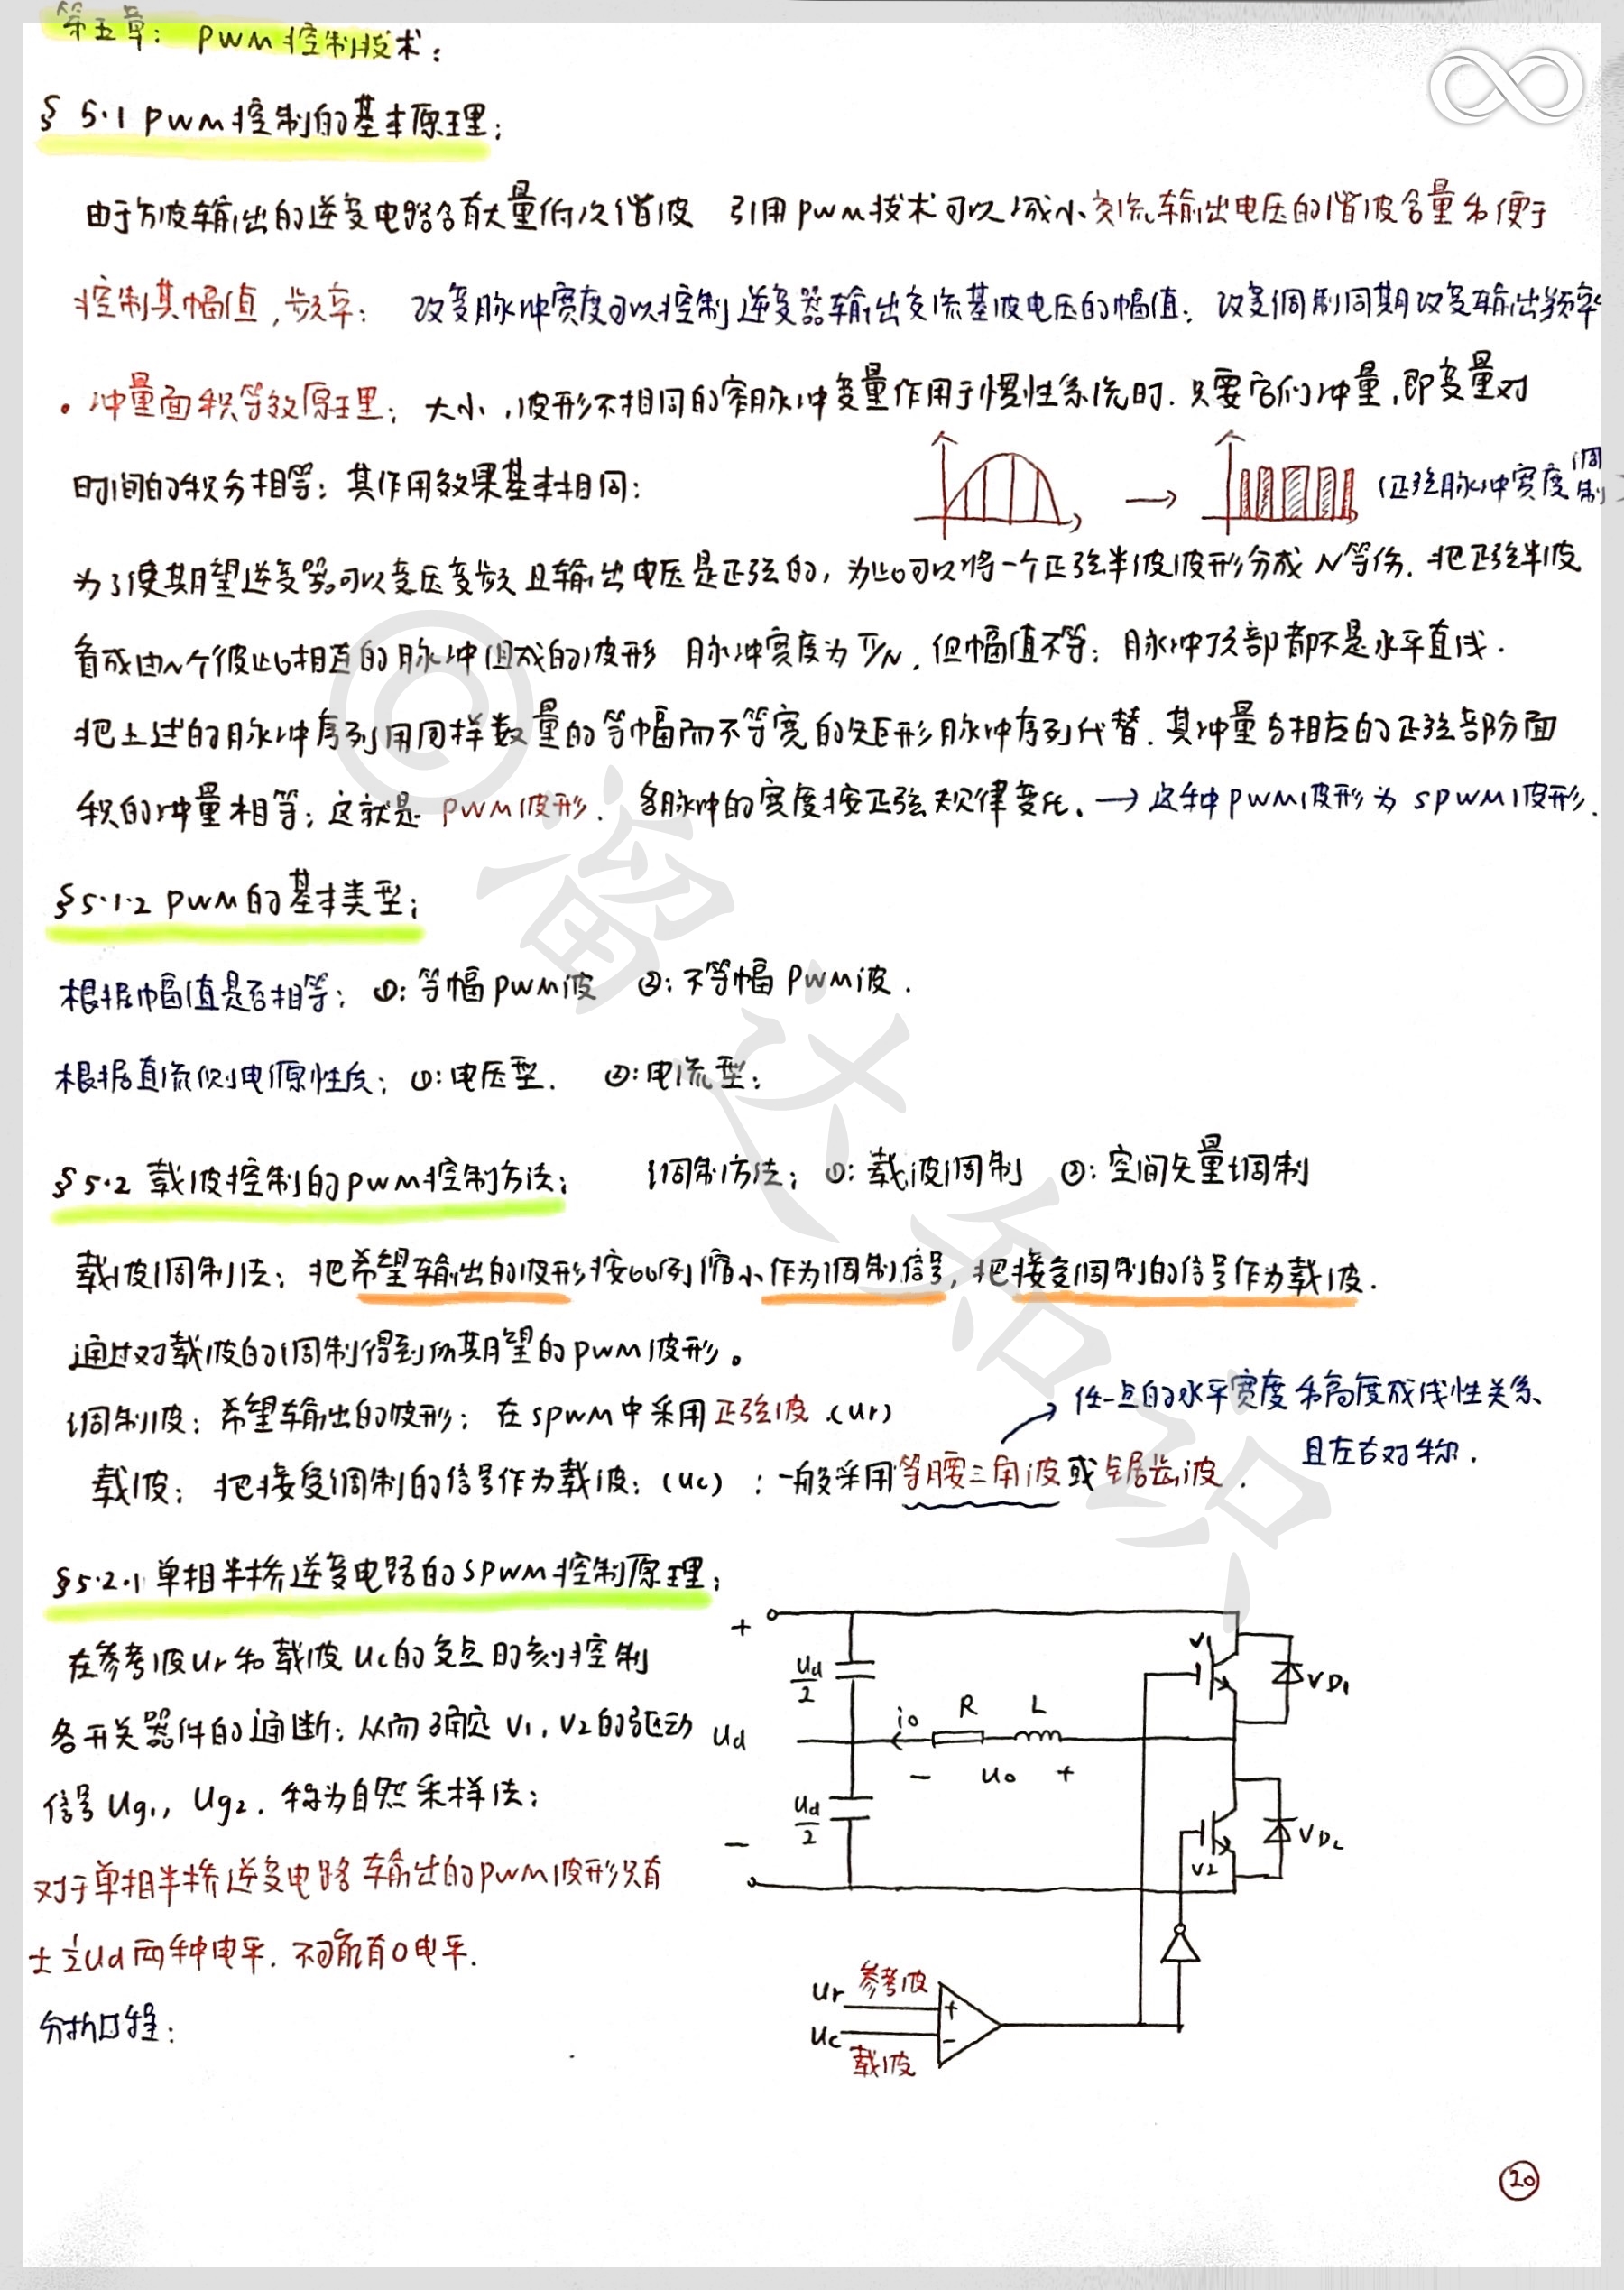 第五章: PWM控制技术:
§ 5.1 PWM控制的基本原理:
由于方波输出的逆变电路含有大量低次谐波 引用PWM技术可以减小交流输出电压的谐波含量和便于
控制其幅值,频率: 改变脉冲宽度可以控制逆变器输出交流基波电压的幅值; 改变调制周期改变输出频率
· 冲量面积等效原理: 大小,波形不相同的窄脉冲变量作用于惯性系统时.只要它们冲量,即变量对
时间的积分相等; 其作用效果基本相同:
(正弦脉冲宽度调制)
为了使期望逆变器可以变压变频且输出电压是正弦的,为此可以将一个正弦半波波形分成N等份.把正弦半波
看成由N个彼此相连的脉冲组成的波形 脉冲宽度为π/N,但幅值不等; 脉冲顶部都不是水平直线.
把上述的脉冲序列用同样数量的等幅而不等宽的矩形脉冲序列代替.其冲量与相应的正弦部分面
积的冲量相等; 这就是 PWM波形. 各脉冲的宽度按正弦规律变化. → 这种PWM波形为SPWM波形.
§5.1.2 PWM的基本类型:
根据幅值是否相等: ①: 等幅PWM波 ②: 不等幅PWM波.
根据直流侧电源性质: ①: 电压型. ②: 电流型:
§5.2 载波控制的PWM控制方法: 调制方法: ①: 载波调制 ②: 空间矢量调制
载波调制法: 把希望输出的波形按比例缩小作为调制信号,把接受调制的信号作为载波.
通过对载波的调制得到所期望的PWM波形。
调制波: 希望输出的波形; 在SPWM中采用正弦波.(Ur)
任一点的水平宽度和高度成线性关系
且左右对称.
载波: 把接受调制的信号作为载波: (Uc) : 一般采用等腰三角波或锯齿波.
§5.2.1 单相半桥逆变电路的SPWM控制原理:
在参考波Ur和载波Uc的交点时刻控制
各开关器件的通断; 从而确定V1, V2的驱动
信号Ug1, Ug2. 称为自然采样法:
对于单相半桥逆变电路输出的PWM波形只有
±½Ud两种电平.不可能有0电平.
分析过程:
+
Ud/2
V1
VD1
io R L
Ud
- Uo +
Ud/2
V2
VD2
-
Ur 参考波
+
Uc 载波
-
20
©溜达知识